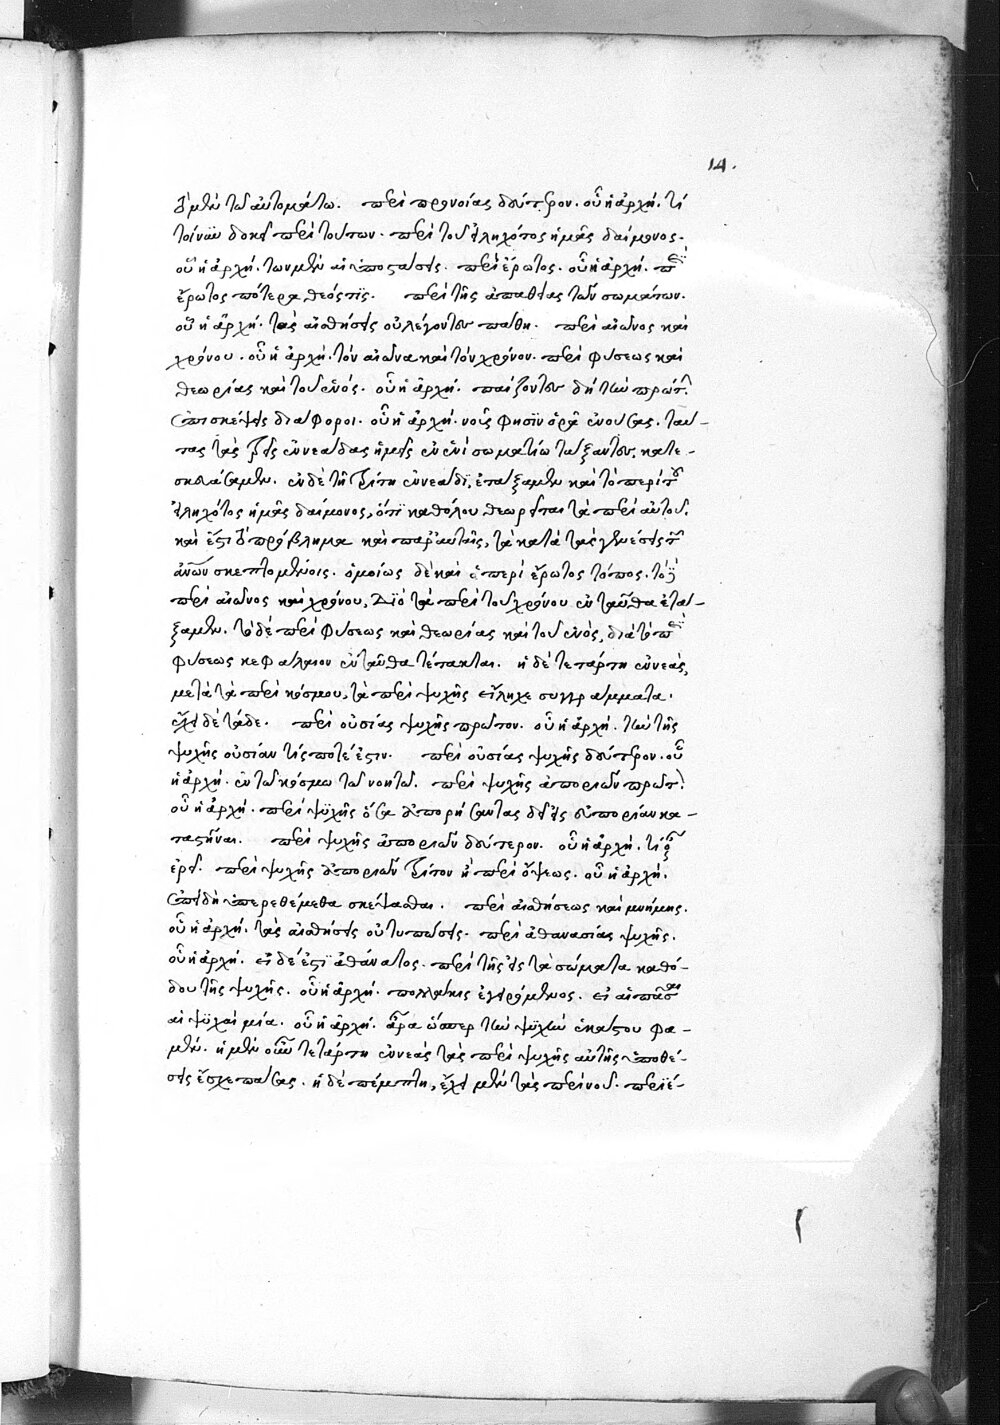 14.
τὸ μὲν τῶ αὐτομάτω. περὶ προνοίας δεύτερον. οὗ ἡ ἀρχή. τί
τοίνυν δοκεῖ περὶ τούτων. περὶ τοῦ εἰληχότος ἡμᾶς δαίμονος.
οὗ ἡ ἀρχή. τῶν μὲν αἱ ὑποστάσεις. περὶ ἔρωτος. οὗ ἡ ἀρχή. περὶ
ἔρωτος πότερα θεός τις. περὶ τῆς ἀπαθείας τῶν σωμάτων.
οὗ ἡ ἀρχή. τὰς αἰσθήσεις οὐ λέγοντες πάθη. περὶ αἰῶνος καὶ
χρόνου. οὗ ἡ ἀρχή. τὸν αἰῶνα καὶ τὸν χρόνον. περὶ φύσεως καὶ
θεωρίας καὶ τοῦ ἑνός. οὗ ἡ ἀρχή. παίζοντες δὴ τὴν πρώτ
ἐπισκέψεις διάφοροι. οὗ ἡ ἀρχή. νοῦς φησὶν ὁρᾶ ἐνούσας. ταύ-
τας τὰς τρεῖς ἐννεάδας ἡμεῖς ἐν ἑνὶ σωματίω τάξαντες, κατε-
σκευάσαμεν. ἐν δὲ τῆ τρίτη ἐννεάδι, ἐτάξαμεν καὶ τὸ περὶ τοῦ
εἰληχότος ἡμᾶς δαίμονος, ὅτι καθόλου θεωρεῖται τὰ περὶ αὐτοῦ.
καὶ ἔστι τὸ πρόβλημα καὶ παρ' αὐτῆς, τὰ κατὰ τὰς γενέσεις τῶν
ἀνων σκεπτομένοις. ὁμοίως δὲ καὶ ὁ περὶ ἔρωτος τόπος. τὸ
περὶ αἰῶνος καὶ χρόνου, διὸ τὰ περὶ τοῦ χρόνου ἐνταῦθα ἐτά-
ξαμεν. τὸ δὲ περὶ φύσεως καὶ θεωρίας καὶ τοῦ ἑνός, διὰ τὸ περὶ
φύσεως κεφάλαιον ἐνταῦθα τέτακται. ἡ δὲ τετάρτη ἐννεάς,
μετὰ τὰ περὶ κόσμου, τὰ περὶ ψυχῆς εἴληχε συγγράμματα.
ἔχει δὲ τάδε. περὶ οὐσίας ψυχῆς πρῶτον. οὗ ἡ ἀρχή. τὴν τῆς
ψυχῆς οὐσίαν τίς ποτέ ἐστιν. περὶ οὐσίας ψυχῆς δεύτερον. οὗ
ἡ ἀρχή. ἐν τῶ κόσμω τῶ νοητῶ. περὶ ψυχῆς ἀποριῶν πρῶτ
οὗ ἡ ἀρχή. περὶ ψυχῆς ὅσα ἀπορήσαντας δεῖ εἰς εὐπορίαν κα-
ταστῆναι. περὶ ψυχῆς ἀποριῶν δεύτερον. οὗ ἡ ἀρχή. τί οὖν
ἐρεῖ. περὶ ψυχῆς ἀποριῶν τρίτον ἢ περὶ ὄψεως. οὗ ἡ ἀρχή.
ἐπειδὴ ὑπερεθέμεθα σκέψασθαι. περὶ αἰσθήσεως καὶ μνήμης.
οὗ ἡ ἀρχή. τὰς αἰσθήσεις οὐ τυπώσεις. περὶ ἀθανασίας ψυχῆς.
οὗ ἡ ἀρχή. εἰ δέ ἐστι ἀθάνατος. περὶ τῆς εἰς τὰ σώματα καθό-
δου τῆς ψυχῆς. οὗ ἡ ἀρχή. πολλάκις ἐγειρόμενος. εἰ αἱ πᾶσαι
αἱ ψυχαὶ μία. οὗ ἡ ἀρχή. ἆρα ὥσπερ τὴν ψυχὴν ἑκάστου φα-
μέν. ἡ μὲν οὖν τετάρτη ἐννεὰς τὰς περὶ ψυχῆς αὐτῆς ὑποθέ-
σεις ἔσχε πάσας. ἡ δὲ πέμπτη, ἔχει μὲν τὰς περὶ νοῦ. περιέ-